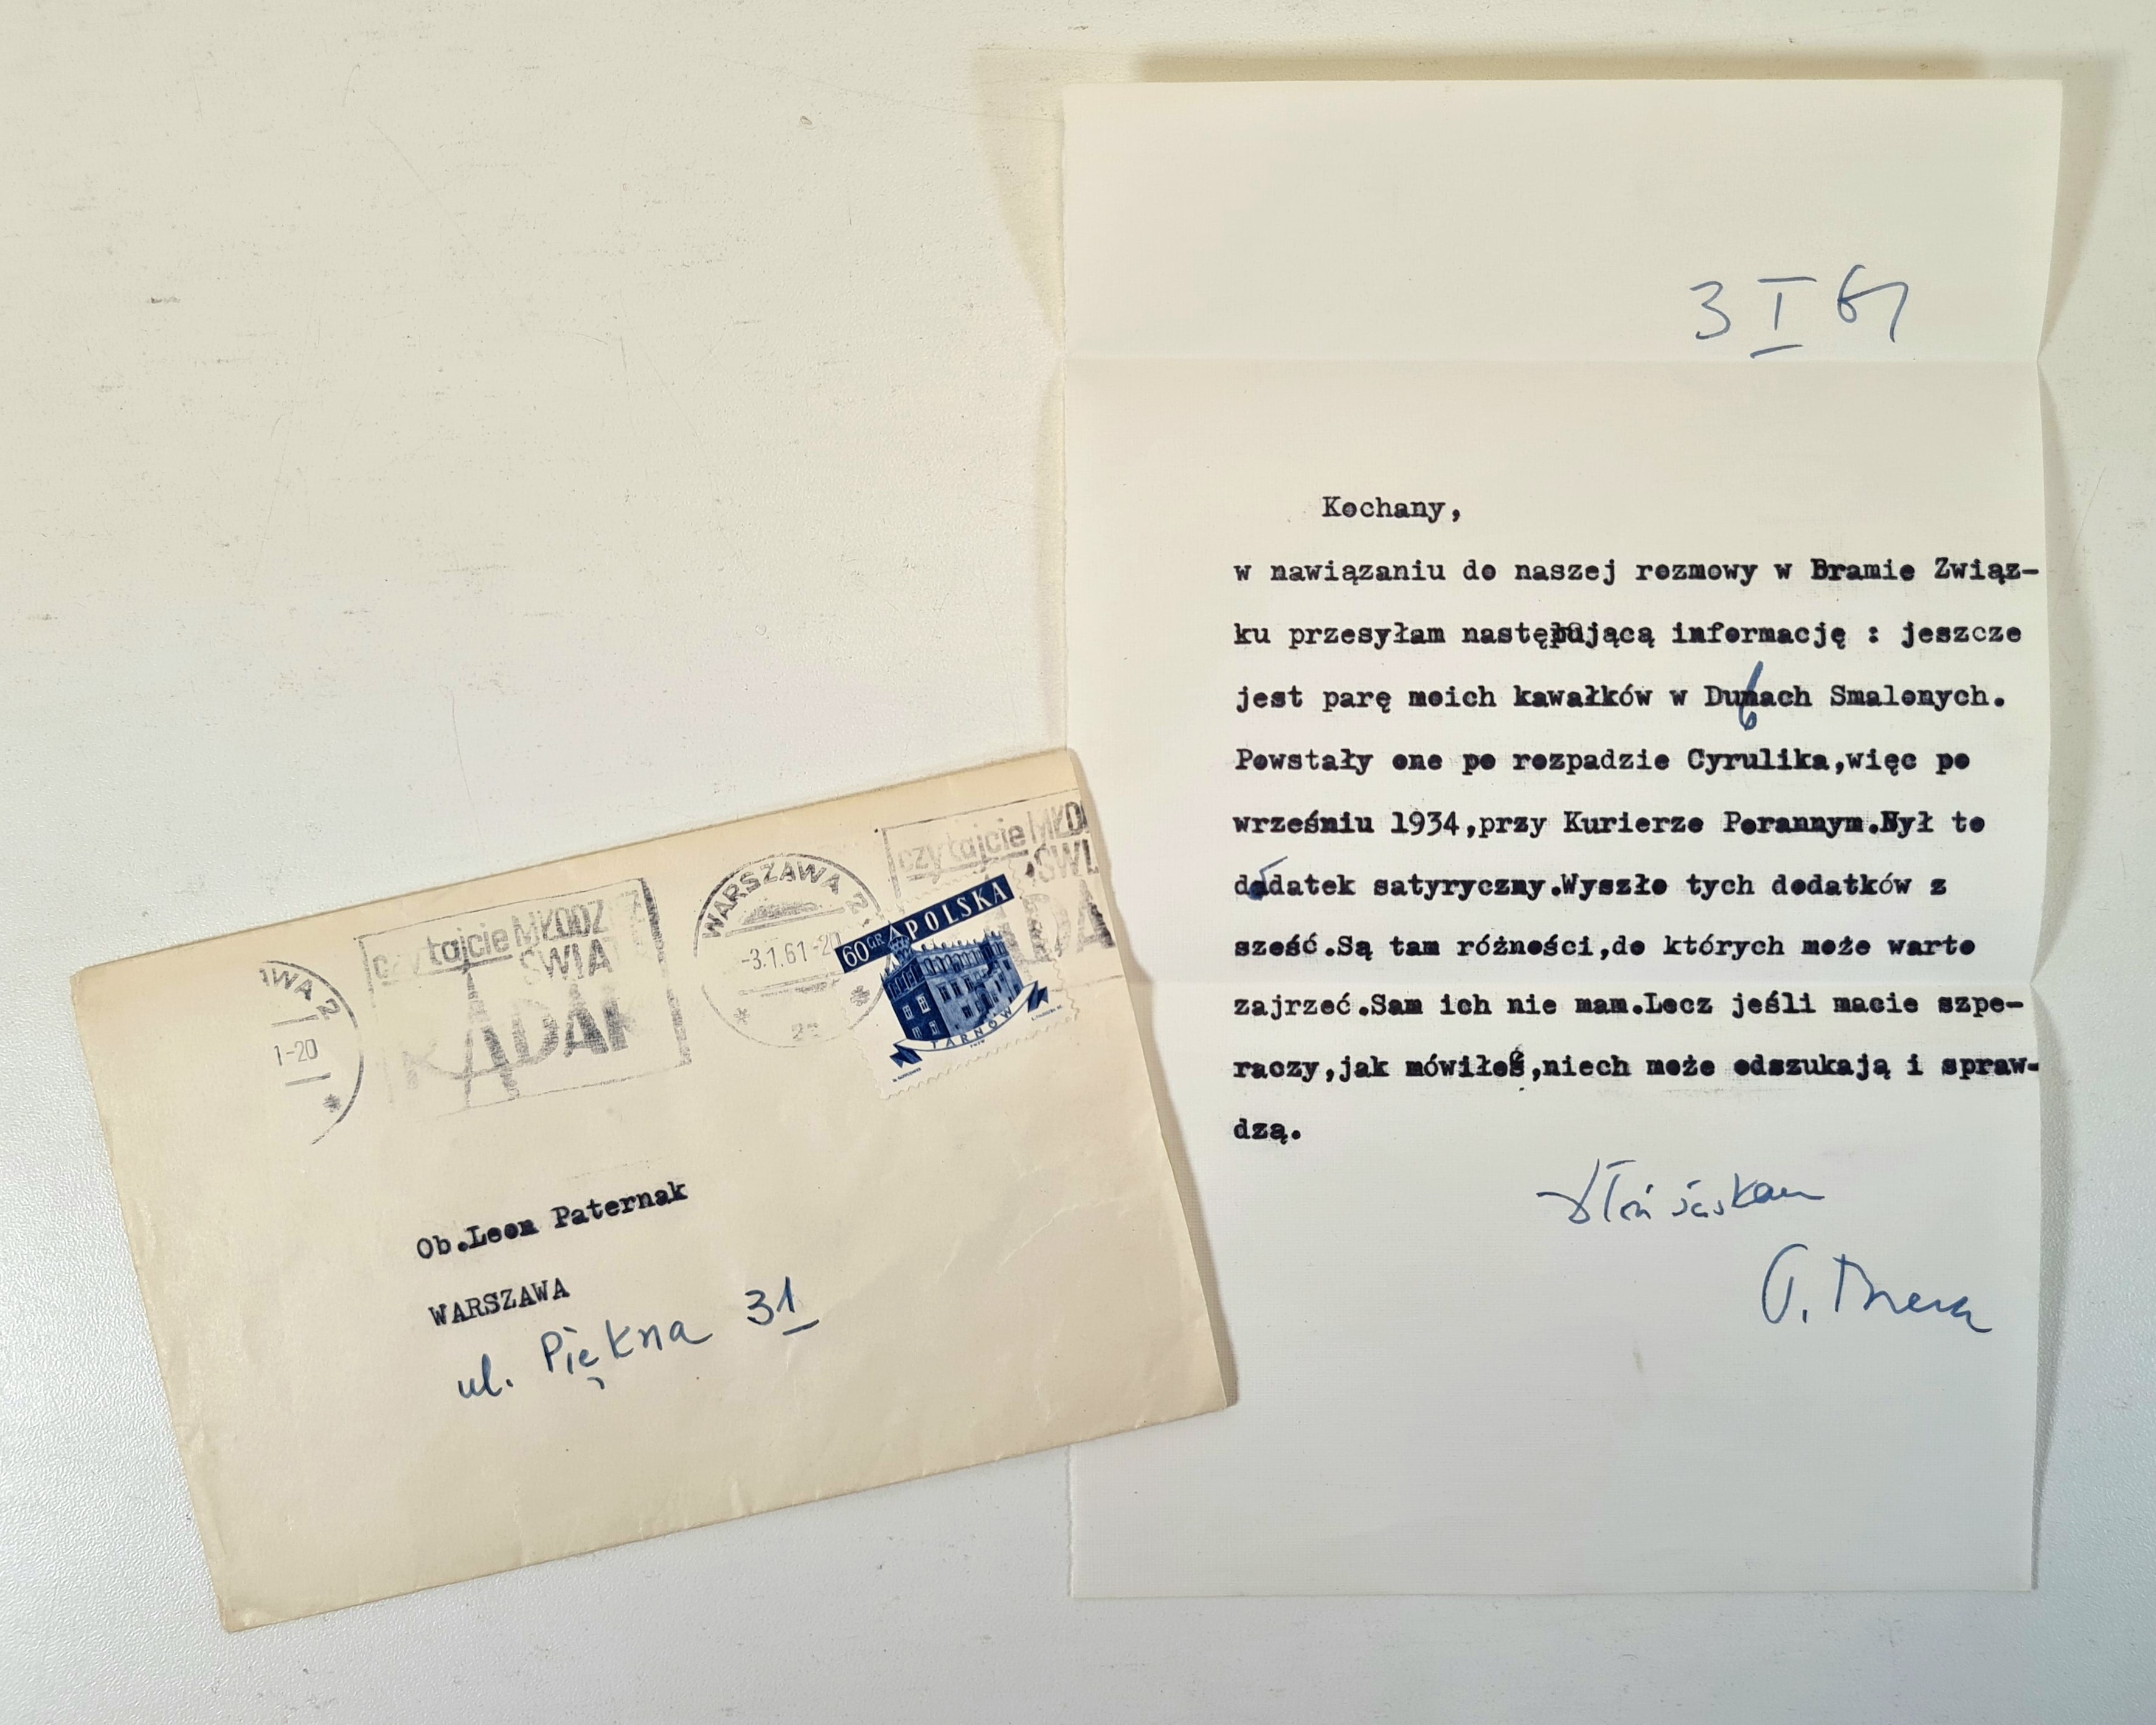 3 I 61
Kochany,
w nawiązaniu do naszej rozmowy w Bramie Związ-
ku przesyłam następującą informację : jeszcze
jest parę moich kawałków w Dubach Smalonych.
Powstały one po rozpadzie Cyrulika,więc po
wrześniu 1934,przy Kurierze Porannym.Był to
dodatek satyryczny.Wyszło tych dodatków z
sześć.Są tam różności,do których może warto
zajrzeć.Sam ich nie mam.Lecz jeśli macie szpe-
raczy,jak mówiłeś,niech może odszukają i spraw-
dzą.
Dłoń ściskam
WARSZAWA 2
-3.1.61-20
czytajcie MŁO
ŚWI
AWA 2
1-20
czytajcie MŁODZ
ŚWIA
RADAR
60 GR POLSKA
TARNÓW
Ob.Leon Paternak
WARSZAWA
ul. Piękna 31